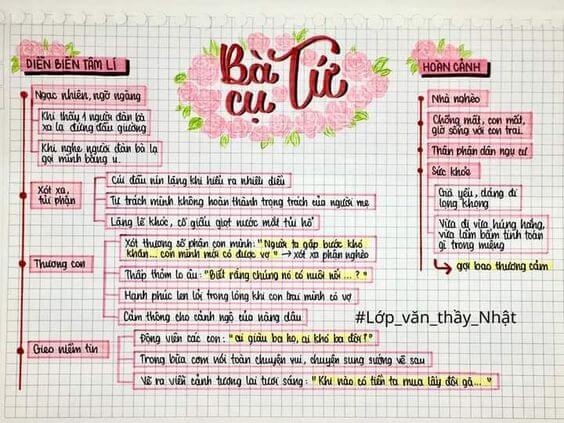 Bà cụ Tứ
DIỄN BIẾN TÂM LÍ
Ngạc nhiên, ngỡ ngàng
Khi thấy 1 người đàn bà
xa lạ đứng đầu giường
Khi nghe người đàn bà lạ
gọi mình bằng u.
Xót xa,
tủi phận
Cúi đầu nín lặng khi hiểu ra nhiều điều
Tự trách mình không hoàn thành trọng trách của người mẹ
Lặng lẽ khóc, cố giấu giọt nước mắt tủi hổ
Thương con
Xót thương số phận con mình: "Người ta gặp bước khó
khăn... con mình mới có được vợ" → xót xa phận nghèo
Thấp thỏm lo âu: "Biết rằng chúng nó có nuôi nổi ...?"
Hạnh phúc len lỏi trong lòng khi con trai mình có vợ
Cảm thông cho cảnh ngộ của nàng dâu
Gieo niềm tin
Động viên các con: "ai giàu ba họ, ai khó ba đời?"
Trong bữa cơm nói toàn chuyện vui, chuyện sung sướng về sau
Vẽ ra viễn cảnh tương lai tươi sáng: "Khi nào có tiền ta mua lấy đôi gà... "
HOÀN CẢNH
Nhà nghèo
Chồng mất, con mất,
giờ sống với con trai.
Thân phận dân ngụ cư
Sức khỏe
Già yếu, dáng đi
lọng khọng
Vừa đi vừa húng hắng,
vừa lẩm bẩm tính toán
gì trong miệng
gợi bao thương cảm
#Lớp_văn_thầy_Nhật